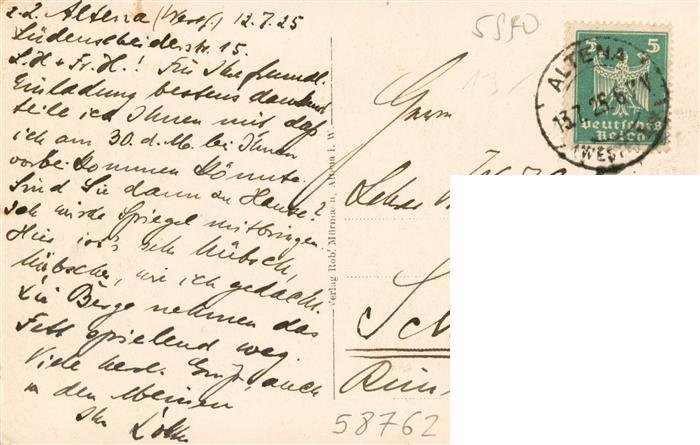 z.Z. Altena (Westf.) 12.7.25
Lüdenscheiderstr. 15.
L. H. + Fr. H.! Für Ihre freundl.
Einladung bestens dankend
teile ich Ihnen mit, daß
ich am 30. d. M. bei Ihnen
vorbei kommen könnte.
Sind Sie dann zu Hause?
Ich würde Spiegel mitbringen.
Hier ist's sehr hübsch,
hübscher, wie ich gedacht.
Die Berge nehmen das
Fett spielend weg.
Viele herzl. Grüße, auch
von den Meinen
Ihr
Verlag Robt Mürmann, Altena i. W.
5970
5 5
Deutsches
Reich
ALTENA
13.7.25.6-7N
(WESTF
Herrn
Lehrer
58762